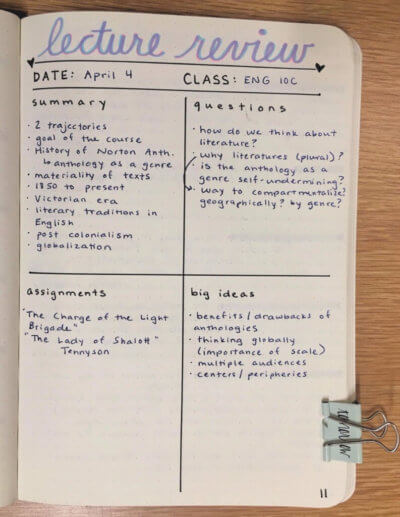 lecture review
DATE: April 4
CLASS: ENG 10C
summary
· 2 trajectories
· goal of the course
· History of Norton Anth.
↳ anthology as a genre
· materiality of texts
· 1850 to present
· Victorian era
· literary traditions in
English
· post colonialism
· globalization
questions
· how do we think about
literature?
· why literatures (plural)?
· is the anthology as a
genre self-undermining?
· way to compartmentalize?
geographically? by genre?
assignments
"The Charge of the Light
Brigade"
"The Lady of Shalott"
Tennyson
big ideas
· benefits/drawbacks of
anthologies
· thinking globally
(importance of scale)
· multiple audiences
· centers/peripheries
11